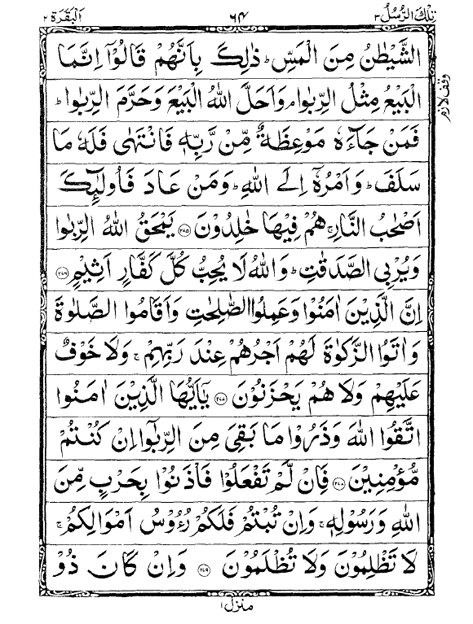 تِلْكَ الرُّسُلُ ٣ ٦٤ اَلْبَقَرَة ٢
الشَّيْطٰنُ مِنَ الْمَسِّ ؕ ذٰلِكَ بِاَنَّهُمْ قَالُوْۤا اِنَّمَا
الْبَيْعُ مِثْلُ الرِّبٰوا ۘ وَاَحَلَّ اللّٰهُ الْبَيْعَ وَحَرَّمَ الرِّبٰوا ؕ
وقف لازم
فَمَنْ جَآءَهٗ مَوْعِظَةٌ مِّنْ رَّبِّهٖ فَانْتَهٰى فَلَهٗ مَا
سَلَفَ ؕ وَاَمْرُهٗۤ اِلَى اللّٰهِ ؕ وَمَنْ عَادَ فَاُولٰٓئِكَ
اَصْحٰبُ النَّارِ ۚ هُمْ فِيْهَا خٰلِدُوْنَ ﴿٢٧٥﴾ يَمْحَقُ اللّٰهُ الرِّبٰوا
وَيُرْبِى الصَّدَقٰتِ ؕ وَاللّٰهُ لَا يُحِبُّ كُلَّ كَفَّارٍ اَثِيْمٍ ﴿٢٧٦﴾
اِنَّ الَّذِيْنَ اٰمَنُوْا وَعَمِلُوا الصّٰلِحٰتِ وَاَقَامُوا الصَّلٰوةَ
وَاٰتَوُا الزَّكٰوةَ لَهُمْ اَجْرُهُمْ عِنْدَ رَبِّهِمْ ۚ وَلَا خَوْفٌ
عَلَيْهِمْ وَلَا هُمْ يَحْزَنُوْنَ ﴿٢٧٧﴾ يٰۤاَيُّهَا الَّذِيْنَ اٰمَنُوا
اتَّقُوا اللّٰهَ وَذَرُوْا مَا بَقِىَ مِنَ الرِّبٰۤوا اِنْ كُنْتُمْ
مُّؤْمِنِيْنَ ﴿٢٧٨﴾ فَاِنْ لَّمْ تَفْعَلُوْا فَاْذَنُوْا بِحَرْبٍ مِّنَ
اللّٰهِ وَرَسُوْلِهٖ ۚ وَاِنْ تُبْتُمْ فَلَكُمْ رُءُوْسُ اَمْوَالِكُمْ ۚ
لَا تَظْلِمُوْنَ وَلَا تُظْلَمُوْنَ ﴿٢٧٩﴾ وَاِنْ كَانَ ذُوْ
منزل ١